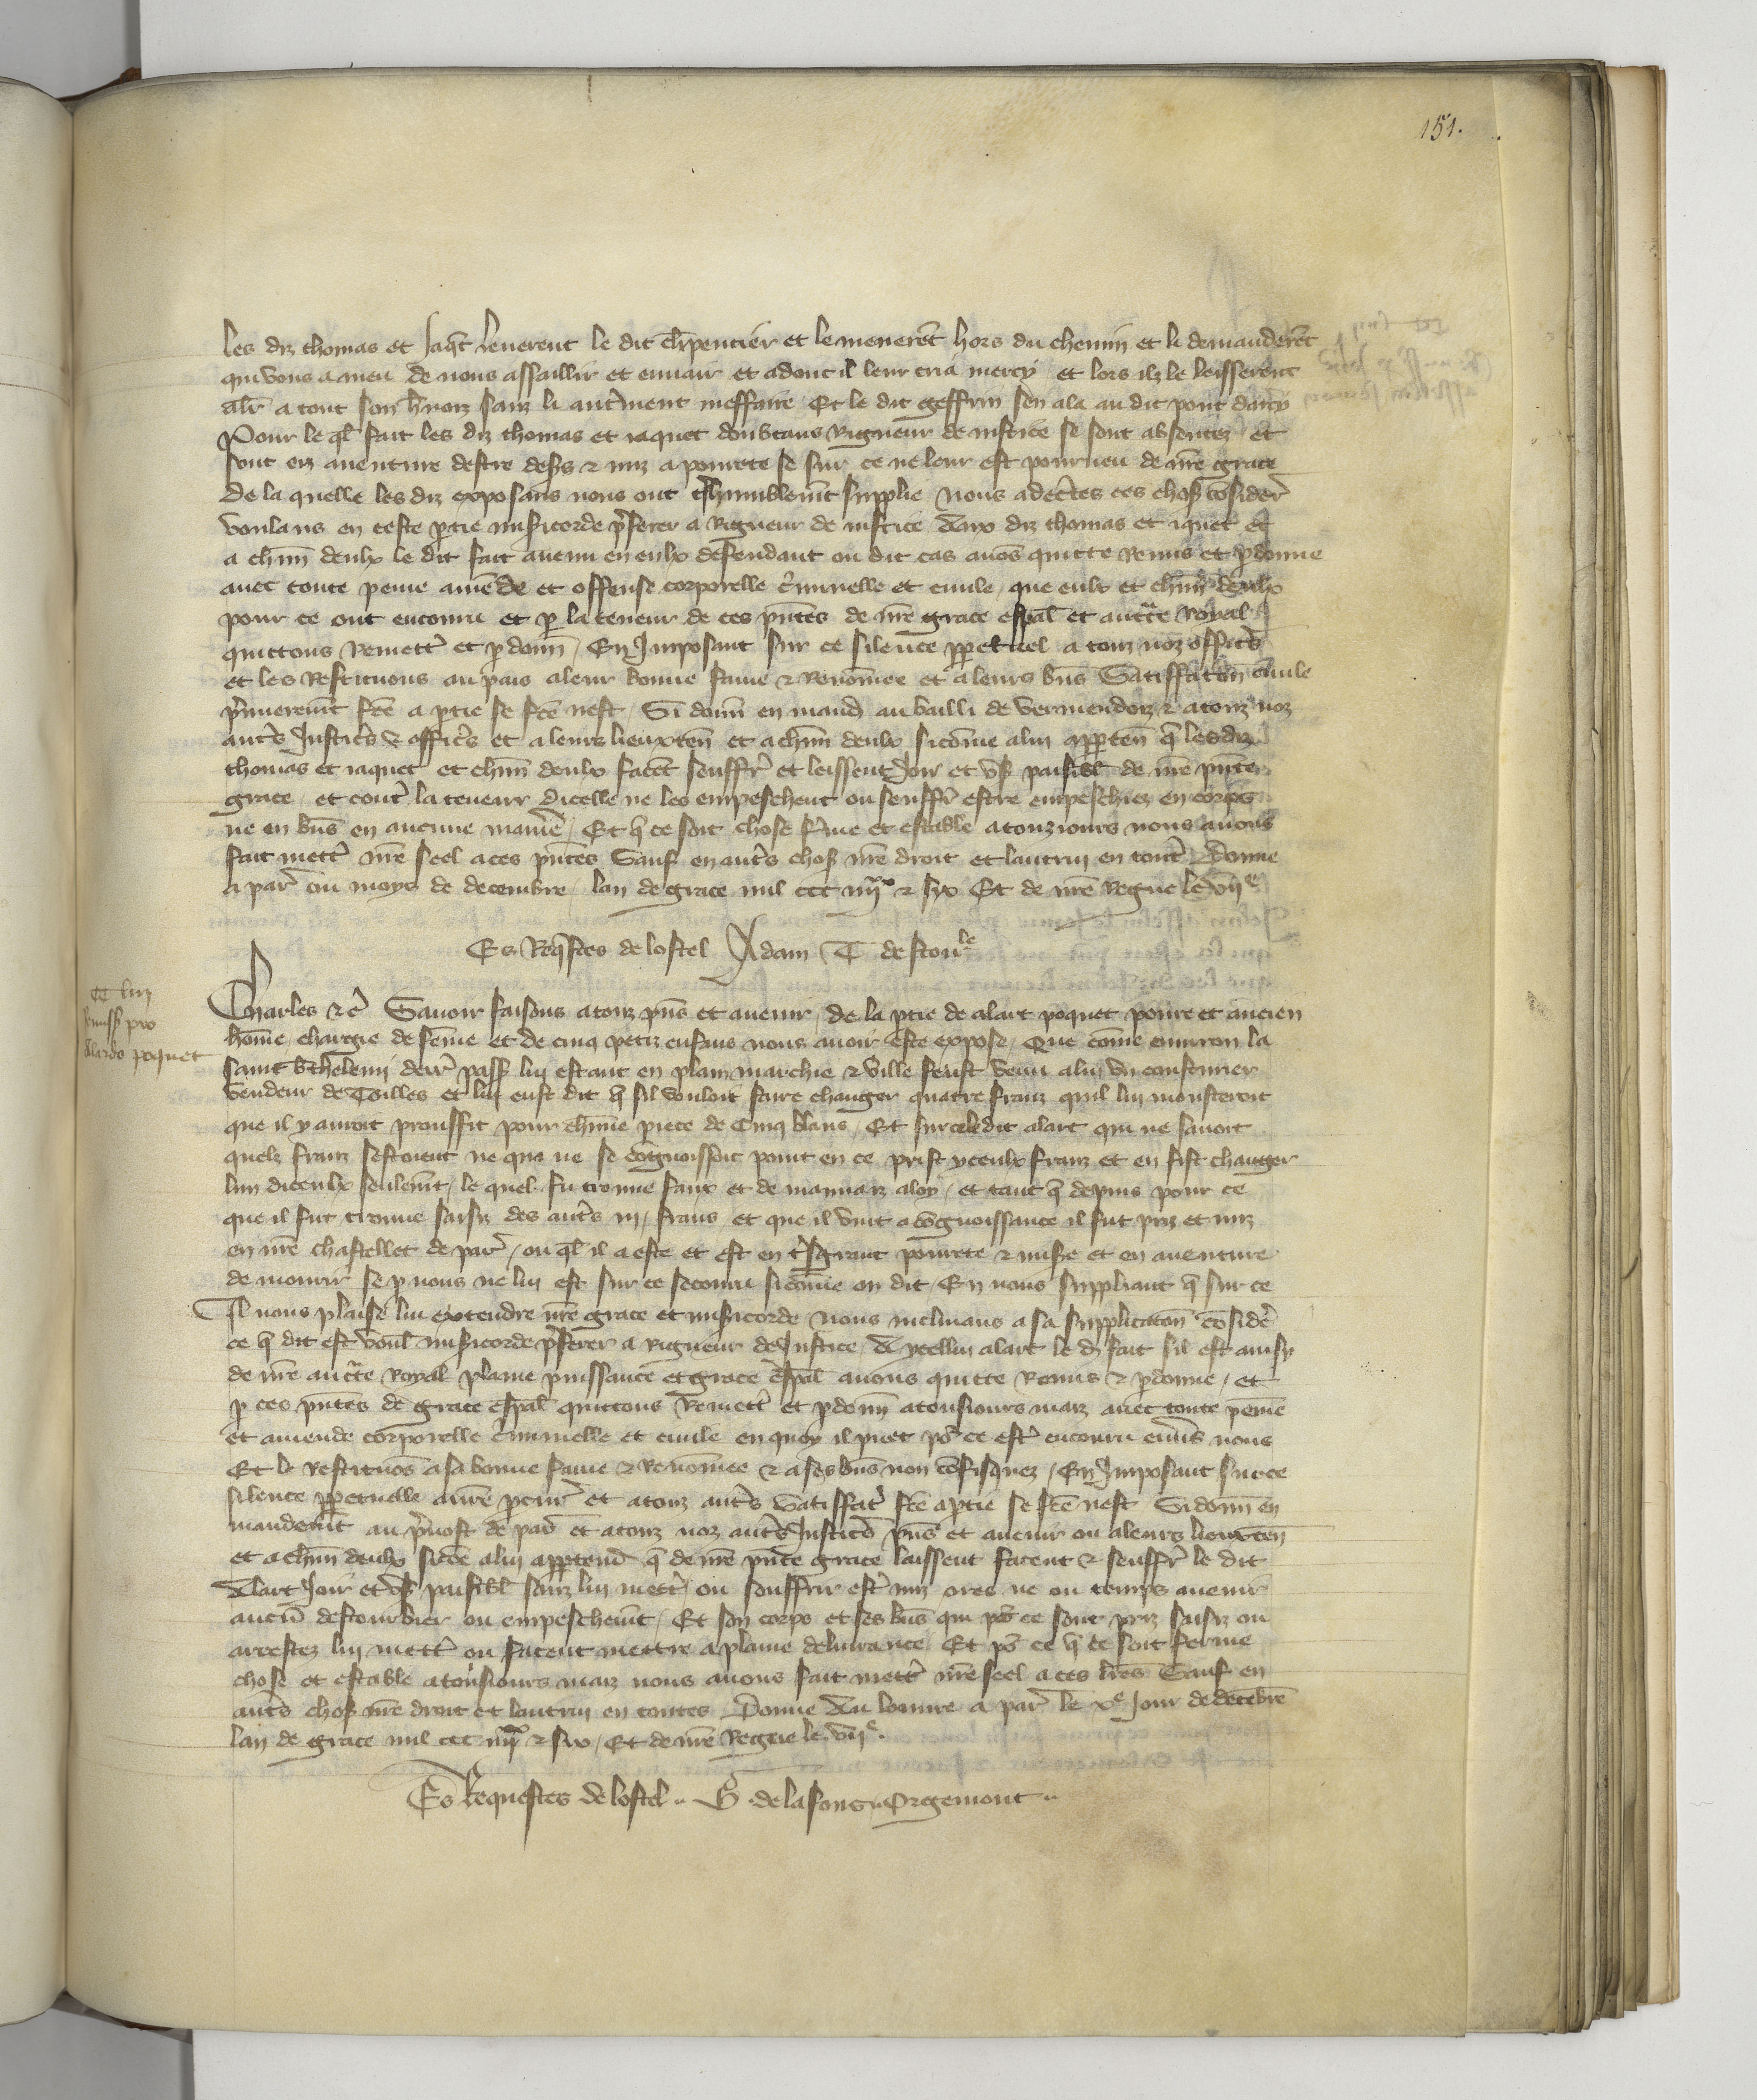 151.
les diz thomas et Jaqt leverent le dit chrpentier et le menerent hors du chemin et li demanderent
qui vous a meu de nous assaillir et envair et adonc il leur cria mercy et lors ilz le leisserent
aler a tout son hrnoiz sanz li autrment meffaire Et le dit geffrin sen ala au dit pont darcy
Pour le ql fait les diz thomas et jaquet doubtans Rigueur de justice se sont absentez et
sont en aventure destre desers et mis a povrete se sur ce ne leur est pourveu de nre grace
De la quelle les diz exposans nous ont tshumblemt supplie Nous adectes ces chos considerˀ
voulans en ceste ptie misicorde pferer a Rigueur de justice Aux diz thomas et jquet et
a chun deulx le dit fait avenu en eulx defendant ou dit cas avos quitte Remis et pdonne
avec toute peine amende et offense corporelle criminelle et civile que eulx et chun deulx
pour ce ont encouru et p la teneur de ces pntes de nre grace espal et auctte Royal
quittons Remettˀ et pdonnˀ En Imposant sur ce silence ppetuel a touz noz officrs
et les Restituons au pais a leur bonne fame et Renommee et a leurs bns Satisffaction civile
pmieremt fce a ptie se fce nest Si donnˀ en mand au bailli de vermendoiz et a touz noz
autrs Justicrs et officrs et a leurs lieuxten et a chun deulx sicome a lui appten q les diz
thomas et jaquet et chun deulx facet seuffrˀ et leissent Joir et us paisibl de nre pnte
grace et contrˀ la teneur dicelle ne les empeschent ou seuffrˀ estre empeschiez en corps
ne en bns en aucune maniere Et q ce soit chose ferme et estable a touzjours nous avons
fait mettrˀ nre seel a ces pntes Sauf en autrs chos nre droit et lautruy en toutˀ Donne
a parˀ ou moys de decembre lan de grace mil ccc iiijxx et six Et de nre Regne le viie
Es Reqstes de lostel Adam T de stouvle
Charles etcˀ Savoir faisons a touz pns et avenir De la ptie de alart poquet povre et ancien
home chargie de feme et de cinq petiz enfans nous avoir este expose Que come environ la
saint bthelemi derr pass lui estant en plain marchie et ville feust venu a lui un cousturier
vendeur de Toilles et lui eust dit q sil vouloit faire changer quatre franz quil lui monsteroit
que il y auroit prouffit pour chune piece de Cinq blans Et sur ce ledit alart qui ne savoit
quelz franz cestoient ne qui ne se cognoissoit point en ce prist yceulx franz et en fist changer
lun diceulx seulemt le quel fu trouve faux et de mauvaiz aloy et tant q depuis pour ce
que il fut trouve saisiz des autrs iij frans et que il vint a cognoissance il fut priz et miz
en nre chastellet de parˀ ou ql il a este et est en tsgrant povrete et misere et en aventure
de mourir se p nous ne lui est sur ce secouru sicome on dit En nous suppliant q sur ce
Il nous plaise lui extendre nre grace et misicorde Nous inclinans a sa supplicaton consider
ce q dit est voul misicorde pferer a Rigueur de Justice A ycellui alart le d fait sil est ainsy
de nre auctte Royal plaine puissance et grace espal avons quitte Remis et pdonne et
p ces pntes de grace espal quittons Remettˀ et pdonn a tousjours maiz avec toute peine
et amende corporelle criminelle et civile en quoy il puet pr ce estˀ encouru envers nous
Et le Restituos a sa bonne fame et Renomee et a ses bns non cofisquez En Imposant sur ce
silence ppetuelle a nre pcurˀ et a touz autrs Satisffatˀ fce a ptie se fce nest Si donn en
mandemt au pvost de parˀ et a touz noz autrs Justicrs pns et avenir ou a leurs lieuxten
et a chun deulx sicoe a lui appten q de nre pnte grace laissent facent et seuffrˀ le dit
Alart Joir et us paisibl sanz lui mettrˀ ou souffrir estˀ mis ores ne ou temps avenir
aucun destourbier ou empeschemt Et son corps et ses bns qui pr ce sont priz saisiz ou
arrestez lui mettˀ ou facent mettre a plaine delivrance Et pr ce q ce soit ferme
chose et estable a tousjours maiz nous avons fait mettˀ nre seel a ces lres Sauf en
autrs chos nre droit et lautruy en toutes Donne Au louvre a parˀ le xe Jour de decebre
lan de grace mil ccc iiijxx et six Et de nre Regne le viie.
Es Requestes de lostel .. G. de la fons .. Orgemont ..
Remiss pro
Alardo poquet